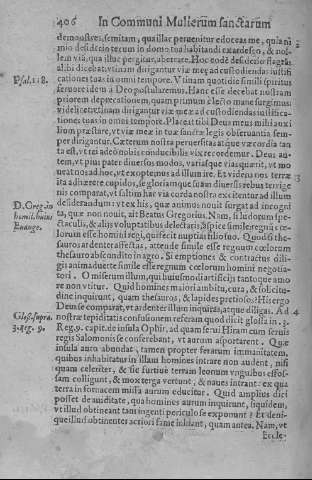 406 In Communi Mulierum sanctarum
demonstres, semitam, qua illac peruenitur edoceas me, quia ni
mio desiderio terum in domo tua habitandi exardesco, & nol-
lem via, qua illuc pergitur, aberrare. Hoc
al. bi dicebat, vtinam dirigantur viæ meę ad custodiendas iustifi
Psal. 118. cationes tuas in omni tempore. Vtinam quotidie simili spiritus
feruore idem à Deo postularemus. Hanc esse decebat nostram
priorem deprecationem, quam primum è lecto mane surgimus:
videlicet vtinam dirigantur viæ meæ ad custodiendas iustifica-
tiones tuas in omni tempore. Placeat tibi Deus meus mihi auxi
lium præstare, vt viæ meæ in tuæ sanctæ legis obseruantia sem-
per dirigantur. Cæterum nostra peruersitas atque væcordia tan
ta est, vt rei adeò nobis conducibilis viscere credemur. Deus au-
tem, vt pius pater diuersos modos, variasque vias quærit, vt mo
ueat nos ad hoc, vt exoptemus ad illum ire. Et videns nos terræ
ita adhærere cupidos, se gloriamque suam diuersis rebus terrige
nis comparat, vt saltim hac via corda nostra excitentur ad illum
desiderandum: vt ex his, quæ animus nouit surgat ad incogni
D. Greg. 10 ta, quæ non nouit, ait Beatus Gregorius. Nam, si ludorum spe-
homil. huius ctaculis, & alijs voluptatibus delectaris, aspice simile regnũ cœ-
Euange. lorum esse homini regi, qui fecit nuptias filio suo. Quod si the-
sauros ardenter affectas, attende simile esse regnum cœlorum
thesauro abscondito in agro. Si emptiones & contractus dili-
gis animaduerte simile esse regnum cœlorum homini negotia-
tori. O miserum illum, qui huiusmodi artificijs tantoque amo
re non vtitur. Quid homines maiori ambitu, cura, & solicitu-
dine inquirunt, quam thesauros, & lapides pretiosos? His ergo
Deus se comparat, vt ardenter illum inquiras, atque diligas. Ad 4
Glos. supra. nostræ tepiditatis confusionem referam quod dicit glossa in .3.
3. Reg. 9. Reg. 9. capit. de insula Ophir, ad quam serui Hiram cum seruis
regis Salomonis se conferebant, vt aurum asportarent. Quæ
insula auro abundat, tamen propter ferarum immanitatem,
quibus inhabitatur in illam homines intrare non audent, nisi
quam celeriter, & sic furtiuè terram leonum vnguibus effos-
sam colligunt, & mox terga vertunt, & naues intrant: ex qua
terra in fornacem missa aurum educitur. Quid amplius dici
posset de auiditate, qua homines aurum inquirunt, siquidem,
vt illud obtineant tam ingenti periculo se exponunt? Et deni-
que illud obtinentes acriori fame inhiant, quam antea. Nam, vt
Eccle-